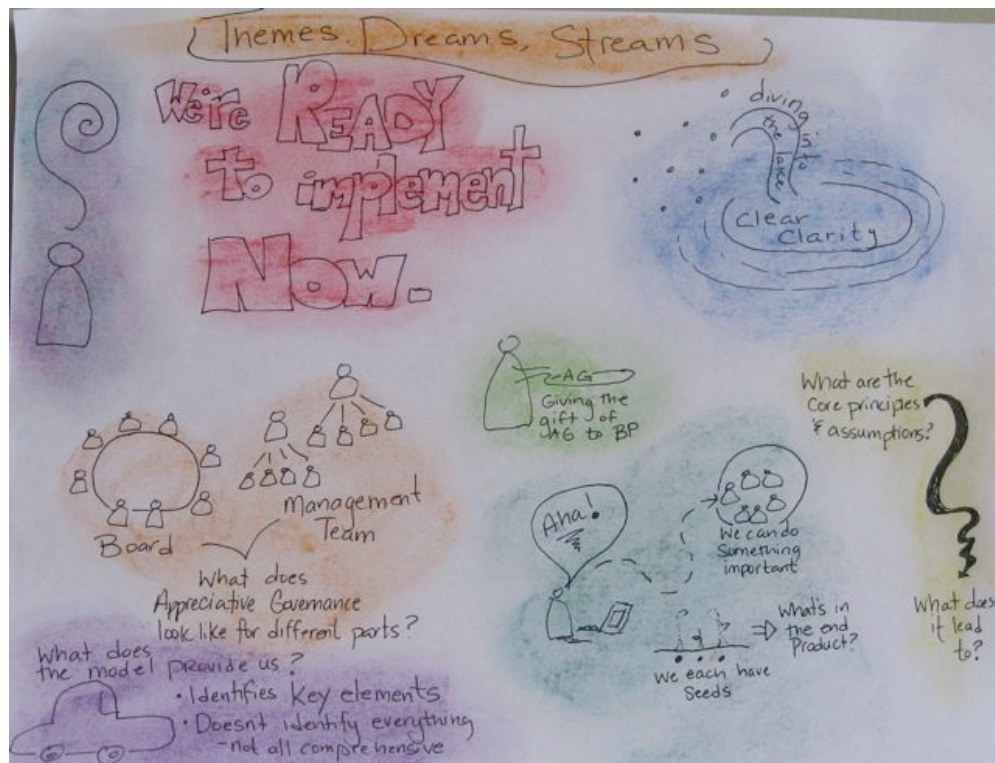 Themes, Dreams, Streams
We're READY
to implement
Now.
diving
into
the lake
Clear
Clarity
AG
Giving the
gift of
AG to BP
What are the
Core principles
& assumptions?
What does
it lead
to?
Board
Management
Team
What does
Appreciative Governance
look like for different parts?
Aha!
We can do
Something
important
What's in
the end
Product?
We each have
Seeds
What does
the model provide us?
• Identifies Key elements
• Doesnt identify everything
- not all comprehensive